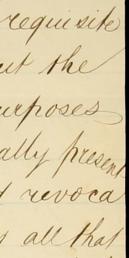 requisite
ut the
urposes
ally present
d revoca
s all that